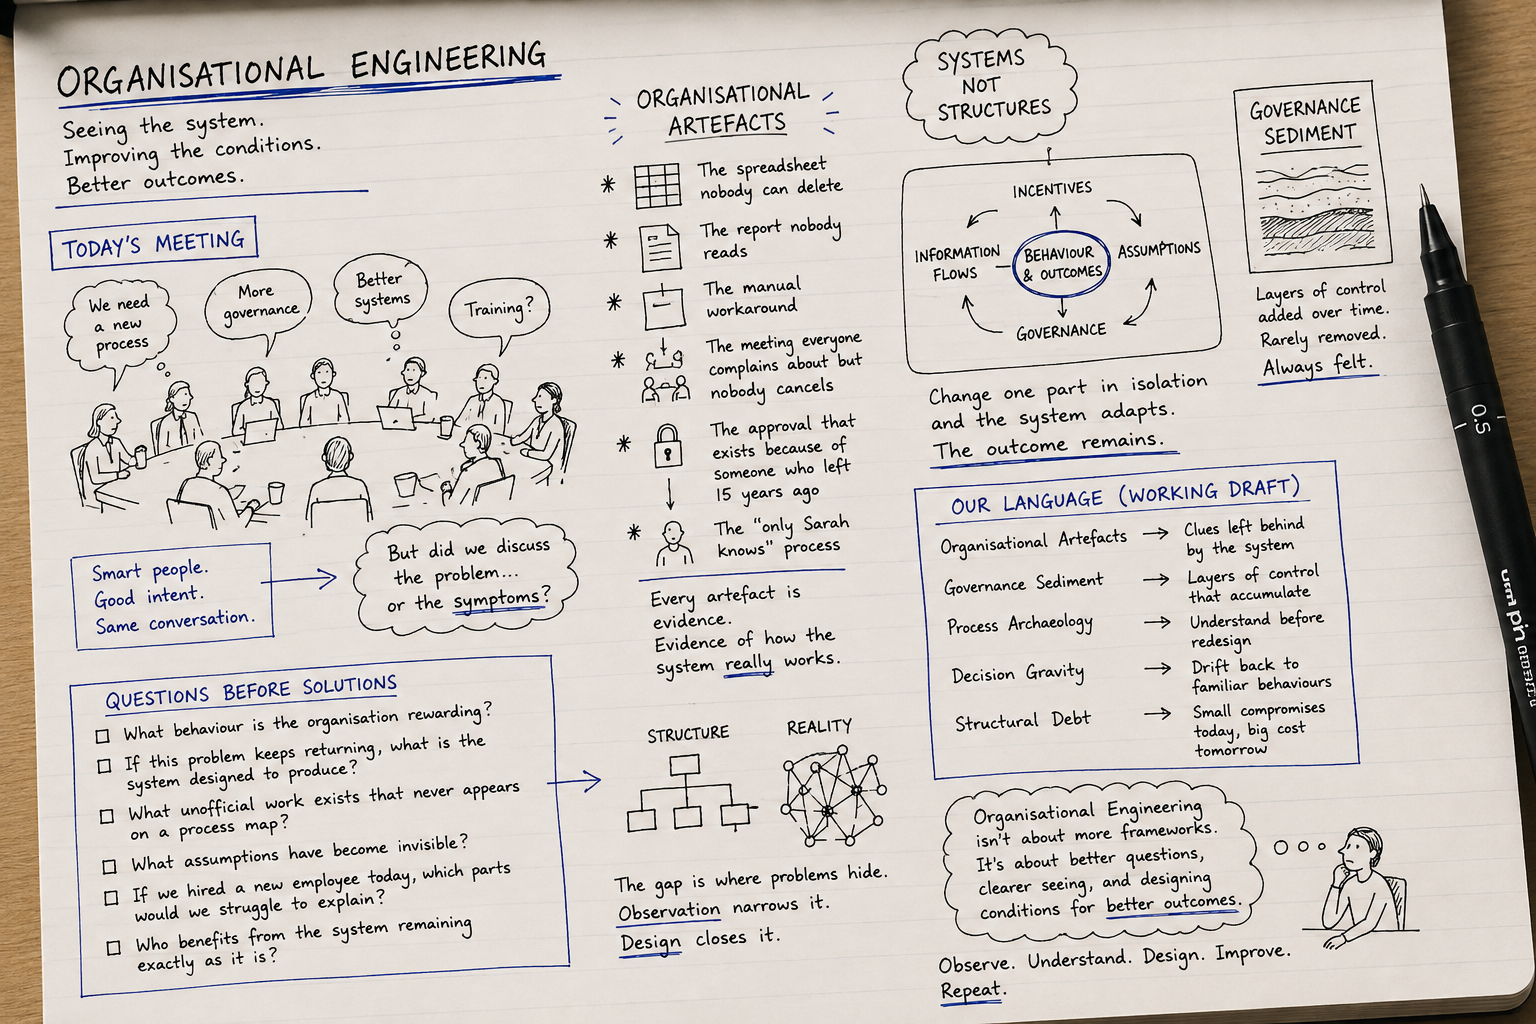 ORGANISATIONAL ENGINEERING
Seeing the system.
Improving the conditions.
Better outcomes.
TODAY'S MEETING
We need
a new
process
More
governance
Better
systems
Training?
Smart people.
Good intent.
Same conversation.
But did we discuss
the problem...
or the symptoms?
QUESTIONS BEFORE SOLUTIONS
What behaviour is the organisation rewarding?
If this problem keeps returning, what is the
system designed to produce?
What unofficial work exists that never appears
on a process map?
What assumptions have become invisible?
If we hired a new employee today, which parts
would we struggle to explain?
Who benefits from the system remaining
exactly as it is?
ORGANISATIONAL
ARTEFACTS
The spreadsheet
nobody can delete
The report nobody
reads
The manual
workaround
The meeting everyone
complains about but
nobody cancels
The approval that
exists because of
someone who left
15 years ago
The "only Sarah
knows" process
Every artefact is
evidence.
Evidence of how the
system really works.
STRUCTURE
REALITY
The gap is where problems hide.
Observation narrows it.
Design closes it.
SYSTEMS
NOT
STRUCTURES
INCENTIVES
INFORMATION
FLOWS
BEHAVIOUR
& OUTCOMES
ASSUMPTIONS
GOVERNANCE
Change one part in isolation
and the system adapts.
The outcome remains.
GOVERNANCE
SEDIMENT
Layers of control
added over time.
Rarely removed.
Always felt.
OUR LANGUAGE (WORKING DRAFT)
Organisational Artefacts → Clues left behind
by the system
Governance Sediment → Layers of control
that accumulate
Process Archaeology → Understand before
redesign
Decision Gravity → Drift back to
familiar behaviours
Structural Debt → Small compromises
today, big cost
tomorrow
Organisational Engineering
isn't about more frameworks.
It's about better questions,
clearer seeing, and designing
conditions for better outcomes.
Observe. Understand. Design. Improve.
Repeat.
0.5